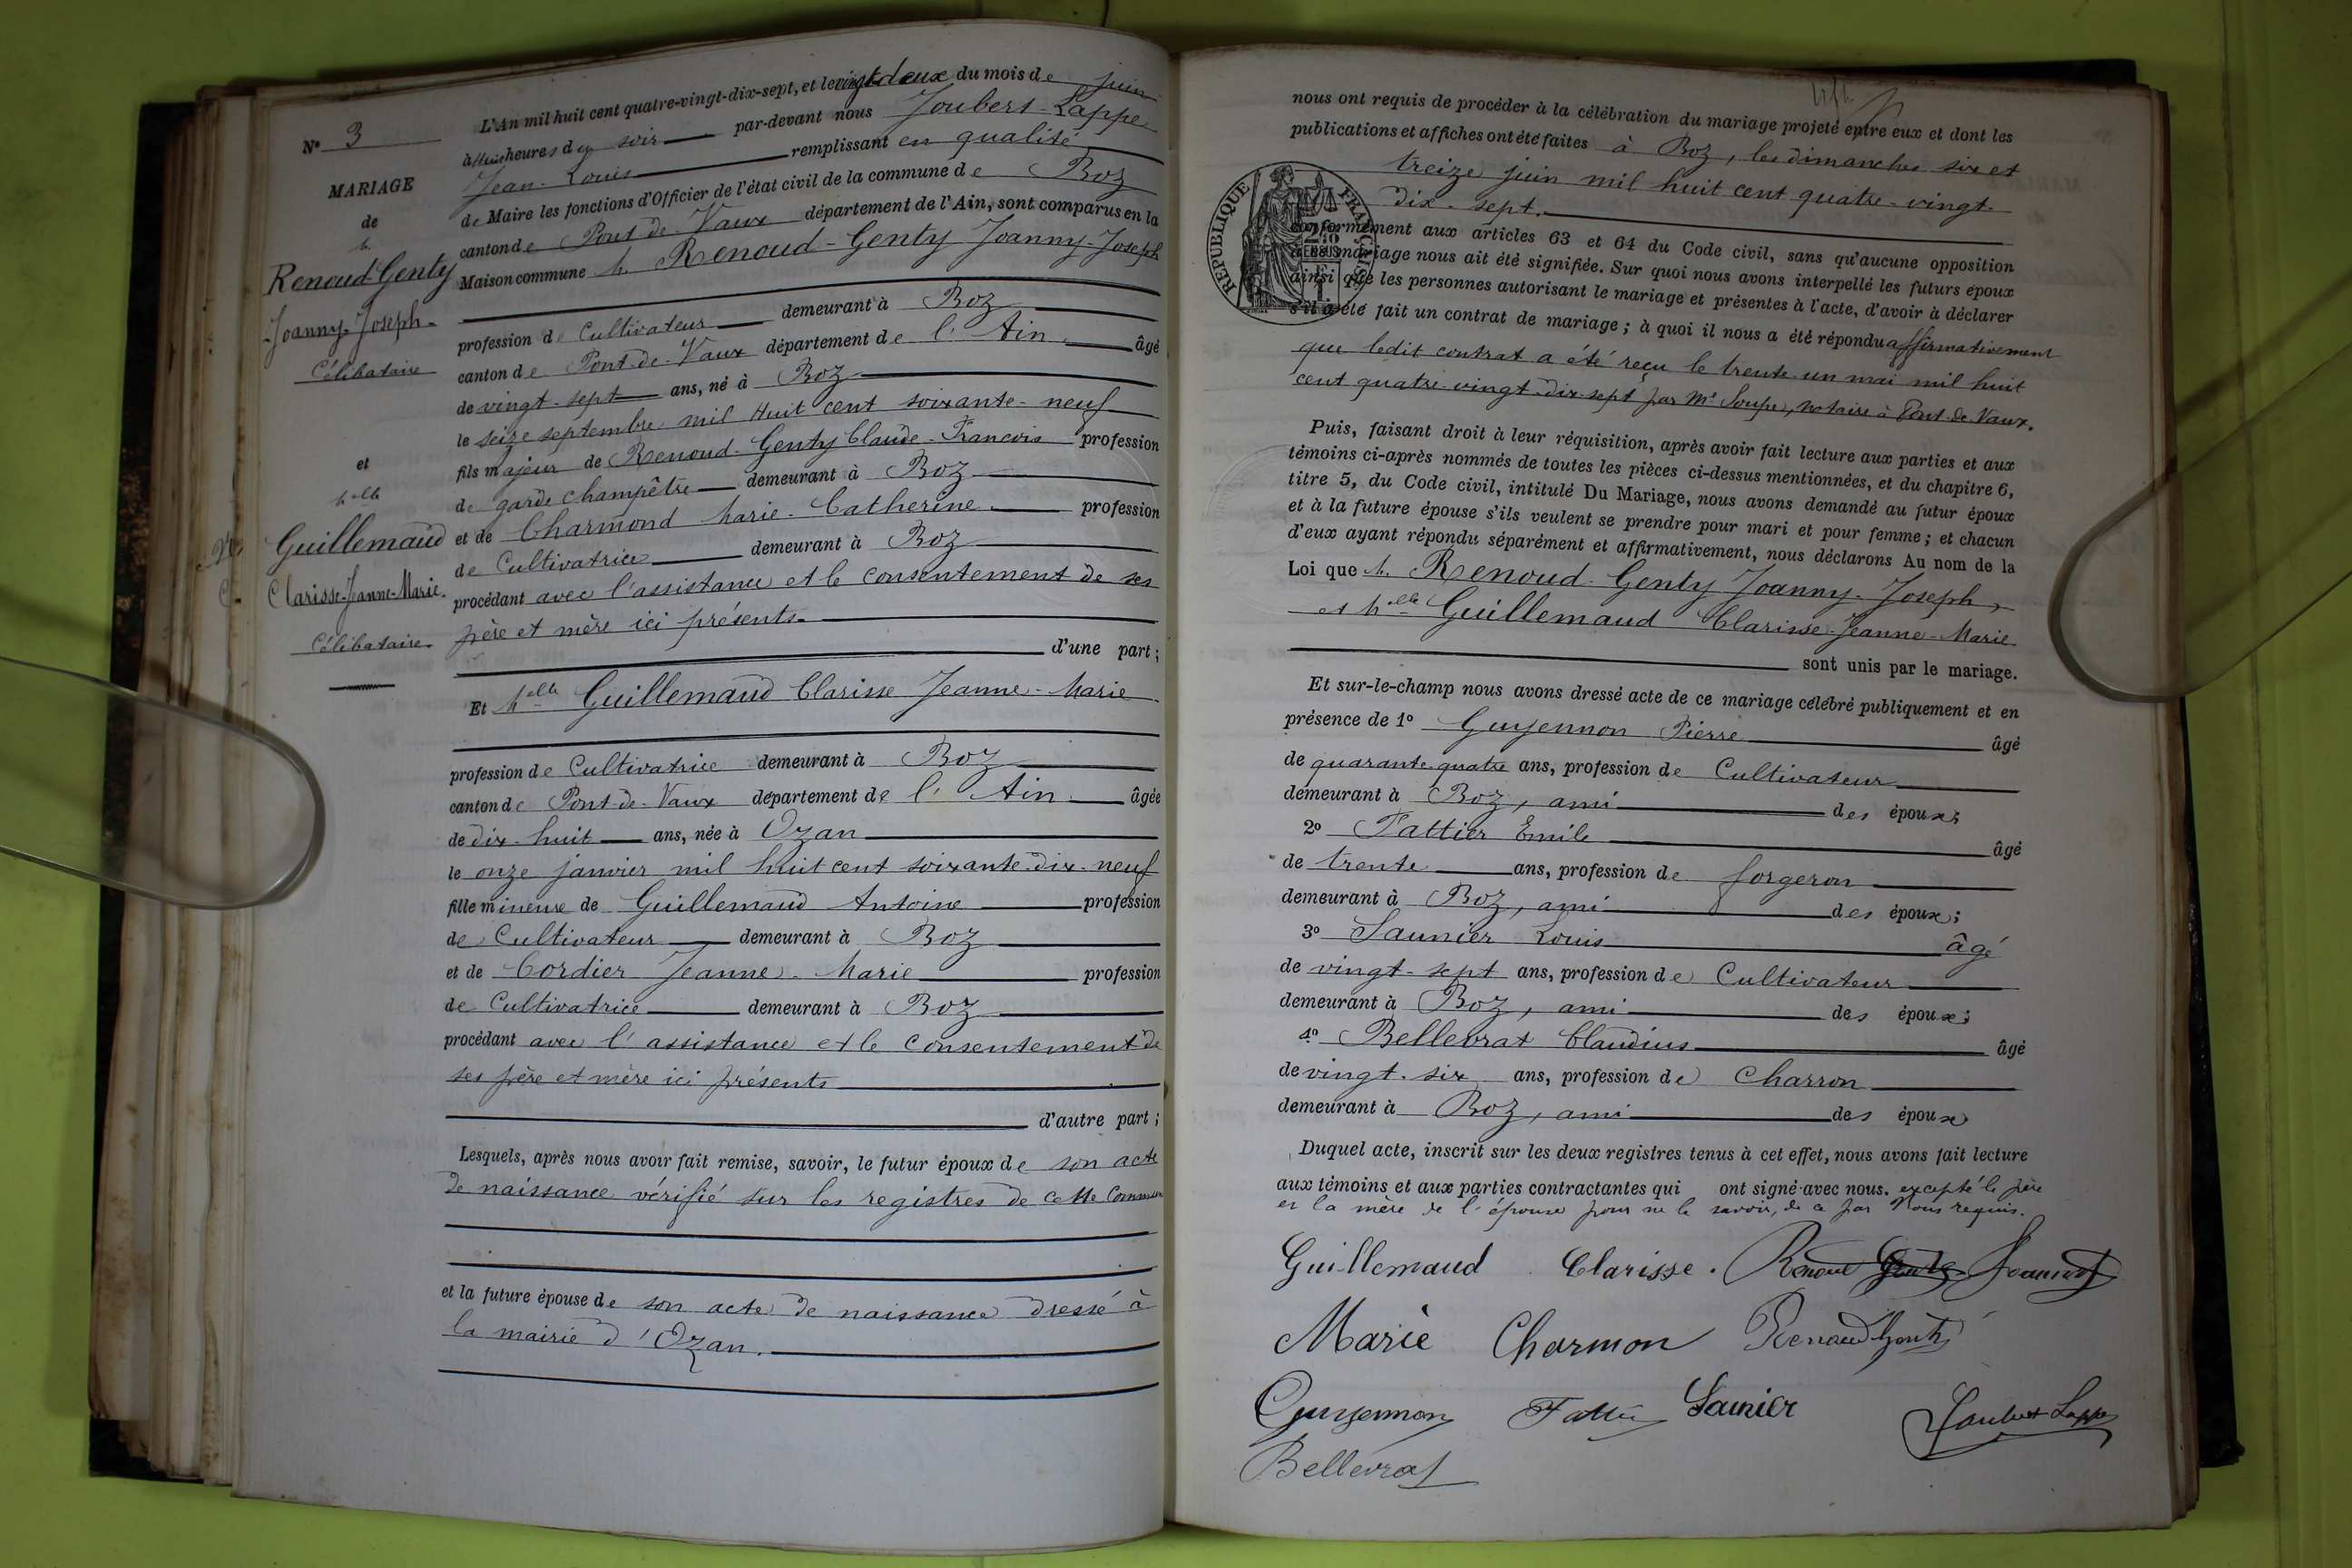 N° 3
MARIAGE
de
M.
Renoud-Genty
Joanny-Joseph-
Célibataire
et
Melle
Guillemaud
Clarisse-Jeanne-Marie.
Célibataire.
L'An mil huit cent quatre-vingt-dix-sept, et le vingt deux du mois de juin
à heures du soir par-devant nous Joubert-Lappe
Jean-Louis remplissant en qualité
de Maire les fonctions d'Officier de l'état civil de la commune de Boz
canton de Pont-de-Vaux département de l'Ain, sont comparus en la
Maison commune M. Renoud-Genty Joanny-Joseph
profession de Cultivateur demeurant à Boz
canton de Pont-de-Vaux département de l'Ain âgé
de vingt-sept ans, né à Boz
le seize septembre mil huit cent soixante-neuf
fils majeur de Renoud-Genty Claude-François profession
de garde champêtre demeurant à Boz
et de Charmond Marie-Catherine profession
de Cultivatrice demeurant à Boz
procédant avec l'assistance et le consentement de ses
père et mère ici présents.
d'une part;
Et Melle Guillemaud Clarisse Jeanne-Marie
profession de Cultivatrice demeurant à Boz
canton de Pont-de-Vaux département de l'Ain âgée
de dix-huit ans, née à Ozan
le onze janvier mil huit cent soixante-dix-neuf
fille mineure de Guillemaud Antoine profession
de Cultivateur demeurant à Boz
et de Cordier Jeanne-Marie profession
de Cultivatrice demeurant à Boz
procédant avec l'assistance et le consentement de
ses père et mère ici présents
d'autre part;
Lesquels, après nous avoir fait remise, savoir, le futur époux de son acte
de naissance vérifié sur les registres de cette Commune
et la future épouse de son acte de naissance dressé à
la mairie d'Ozan.
nous ont requis de procéder à la célébration du mariage projeté entre eux et dont les
publications et affiches ont été faites à Boz, les dimanches six et
treize juin mil huit cent quatre-vingt-
dix-sept.
RÉPUBLIQUE FRANÇAISE
conformément aux articles 63 et 64 du Code civil, sans qu'aucune opposition
mariage nous ait été signifiée. Sur quoi nous avons interpellé les futurs époux
ainsi que les personnes autorisant le mariage et présentes à l'acte, d'avoir à déclarer
s'il a été fait un contrat de mariage; à quoi il nous a été répondu affirmativement
que ledit contrat a été reçu le trente-un mai mil huit
cent quatre-vingt-dix-sept par Me Soupe, notaire à Pont-de-Vaux.
Puis, faisant droit à leur réquisition, après avoir fait lecture aux parties et aux
témoins ci-après nommés de toutes les pièces ci-dessus mentionnées, et du chapitre 6,
titre 5, du Code civil, intitulé Du Mariage, nous avons demandé au futur époux
et à la future épouse s'ils veulent se prendre pour mari et pour femme; et chacun
d'eux ayant répondu séparément et affirmativement, nous déclarons Au nom de la
Loi que M. Renoud-Genty Joanny-Joseph,
et Melle Guillemaud Clarisse-Jeanne-Marie
sont unis par le mariage.
Et sur-le-champ nous avons dressé acte de ce mariage célébré publiquement et en
présence de 1° Guyennon Pierre âgé
de quarante-quatre ans, profession de Cultivateur
demeurant à Boz, ami des époux;
2° Fattier Emile âgé
de trente ans, profession de forgeron
demeurant à Boz, ami des époux;
3° Saunier Louis âgé
de vingt-sept ans, profession de Cultivateur
demeurant à Boz, ami des époux;
4° Bellevrat Claudius âgé
de vingt-six ans, profession de Charron
demeurant à Boz, ami des époux
Duquel acte, inscrit sur les deux registres tenus à cet effet, nous avons fait lecture
aux témoins et aux parties contractantes qui ont signé avec nous. excepté le père
et la mère de l'épouse pour ne le savoir, de ce par Nous requis.
Guillemaud Clarisse. Renoud Genty Joanny
Marie Charmon Renaud Genty
Guyennon Fattier Saunier Joubert Lappe
Bellevrat